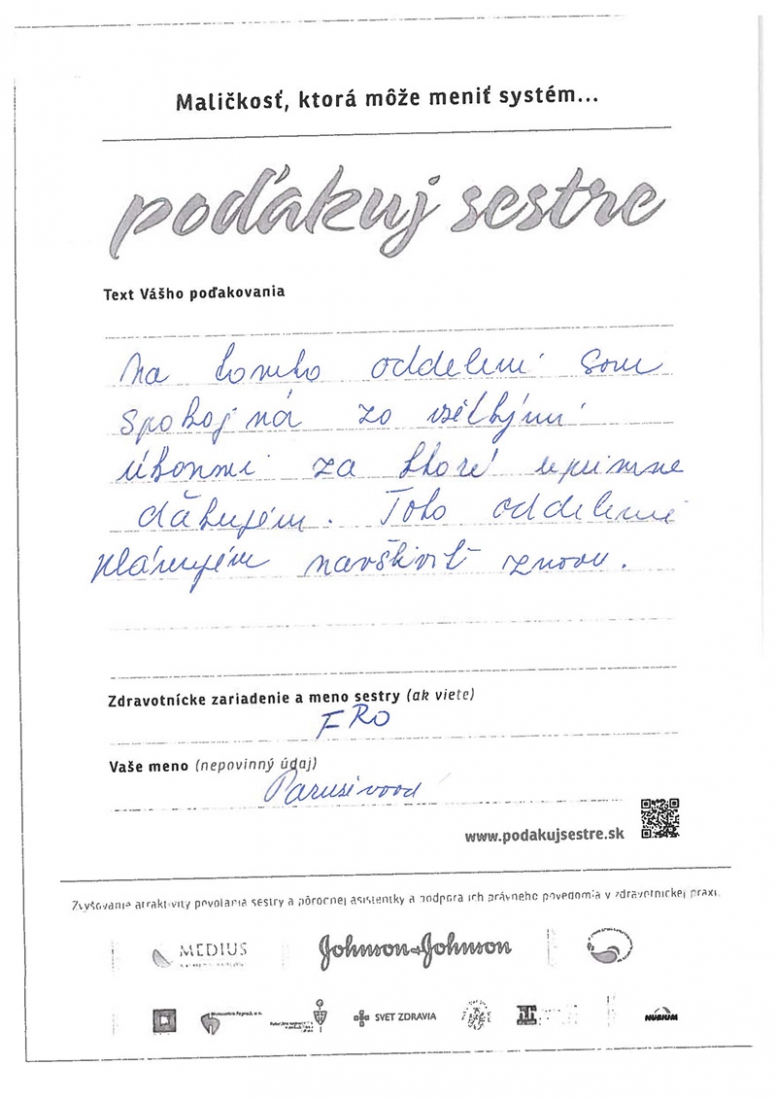 Maličkosť, ktorá môže meniť systém...
poďakuj sestre
Text Vášho poďakovania
Na tomto oddelení som
spokojná zo všetkými
úkonmi za ktoré úprimne
ďakujem. Toto oddelenie
plánujem navštíviť znovu.
Zdravotnícke zariadenie a meno sestry (ak viete)
FRO
Vaše meno (nepovinný údaj)
www.podakujsestre.sk
Zvyšovanie atraktivity povolania sestry a pôrodnej asistentky a podpora ich právneho povedomia v zdravotníckej praxi.
MEDIUS
Johnson+Johnson
SVET ZDRAVIA